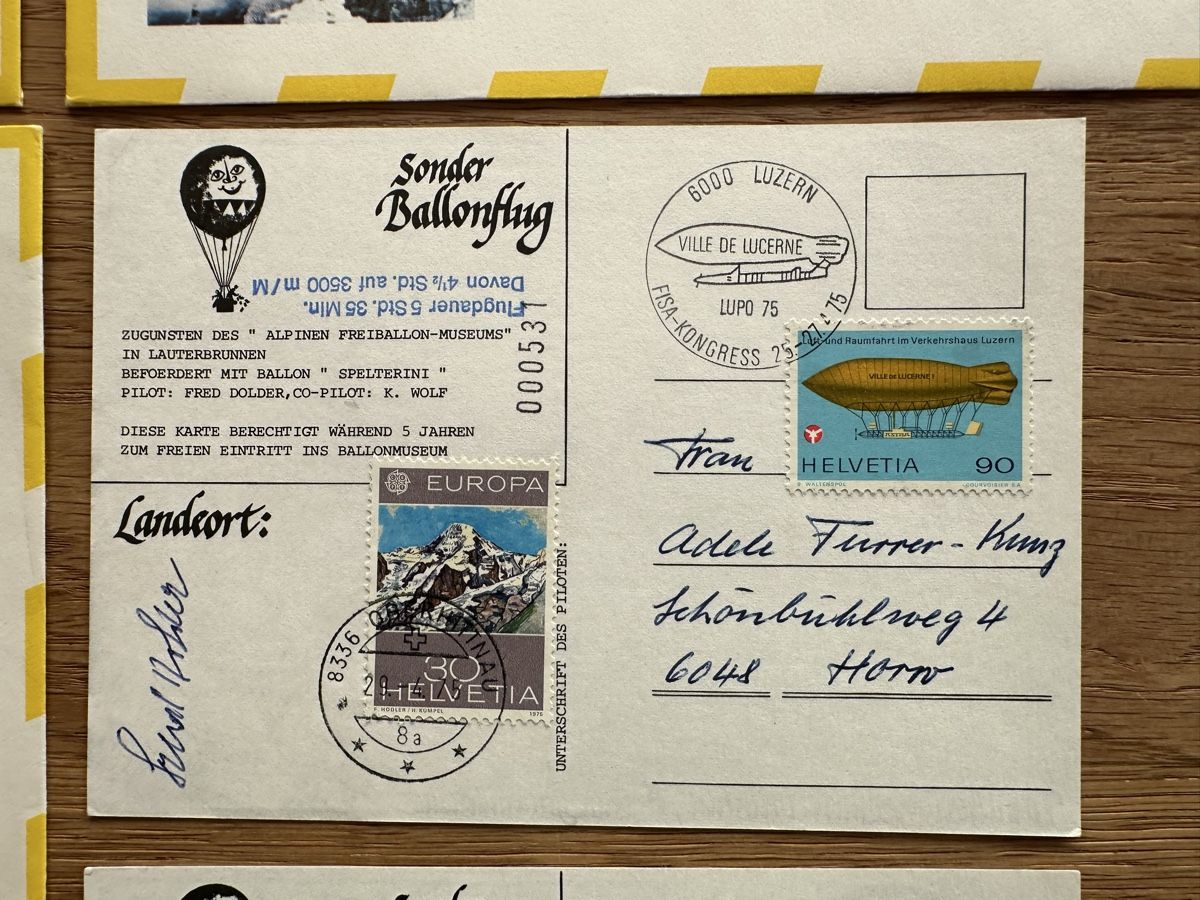 Sonder
Ballonflug
Flugdauer 5 Std. 35 Min.
Davon 4½ Std. auf 3500 m/M
ZUGUNSTEN DES " ALPINEN FREIBALLON-MUSEUMS"
IN LAUTERBRUNNEN
BEFOERDERT MIT BALLON " SPELTERINI "
PILOT: FRED DOLDER,CO-PILOT: K. WOLF
000531
DIESE KARTE BERECHTIGT WÄHREND 5 JAHREN
ZUM FREIEN EINTRITT INS BALLONMUSEUM
Landeort:
EUROPA
30
HELVETIA
F. HODLER / H. KÜMPEL 1975
8336 OBERHITTNAU
29.-4.75
8a
UNTERSCHRIFT DES PILOTEN:
6000 LUZERN
VILLE DE LUCERNE
LUPO 75
FISA-KONGRESS 25.-27.4.75
Luft-und Raumfahrt im Verkehrshaus Luzern
VILLE DE LUCERNE I
ASTRA
HELVETIA 90
P. WALTENSPÜL COURVOISIER S.A.
Frau
Adele Furrer-Kunz
Schönbühlweg 4
6048 Horw
Sonder